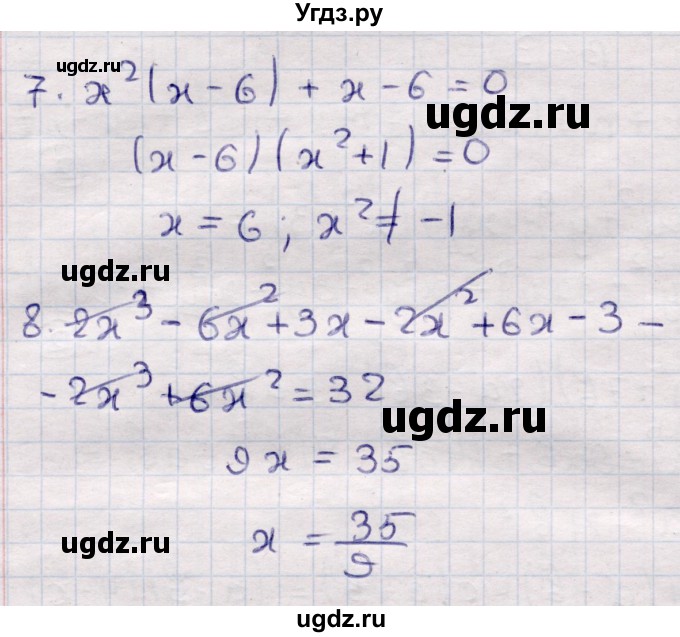 Угдз.ру
ugdz.ru
7. x²(x - 6) + x - 6 = 0
ugdz.ru
(x - 6)(x² + 1) = 0
x = 6; x² ≠ -1
ugdz.ru
ugdz.ru
8. 2x³ - 6x² + 3x - 2x² + 6x - 3 -
- 2x³ + 6x² = 32
ugdz.ru
9x = 35
ugdz.ru
x = 35/9
ugdz.ru